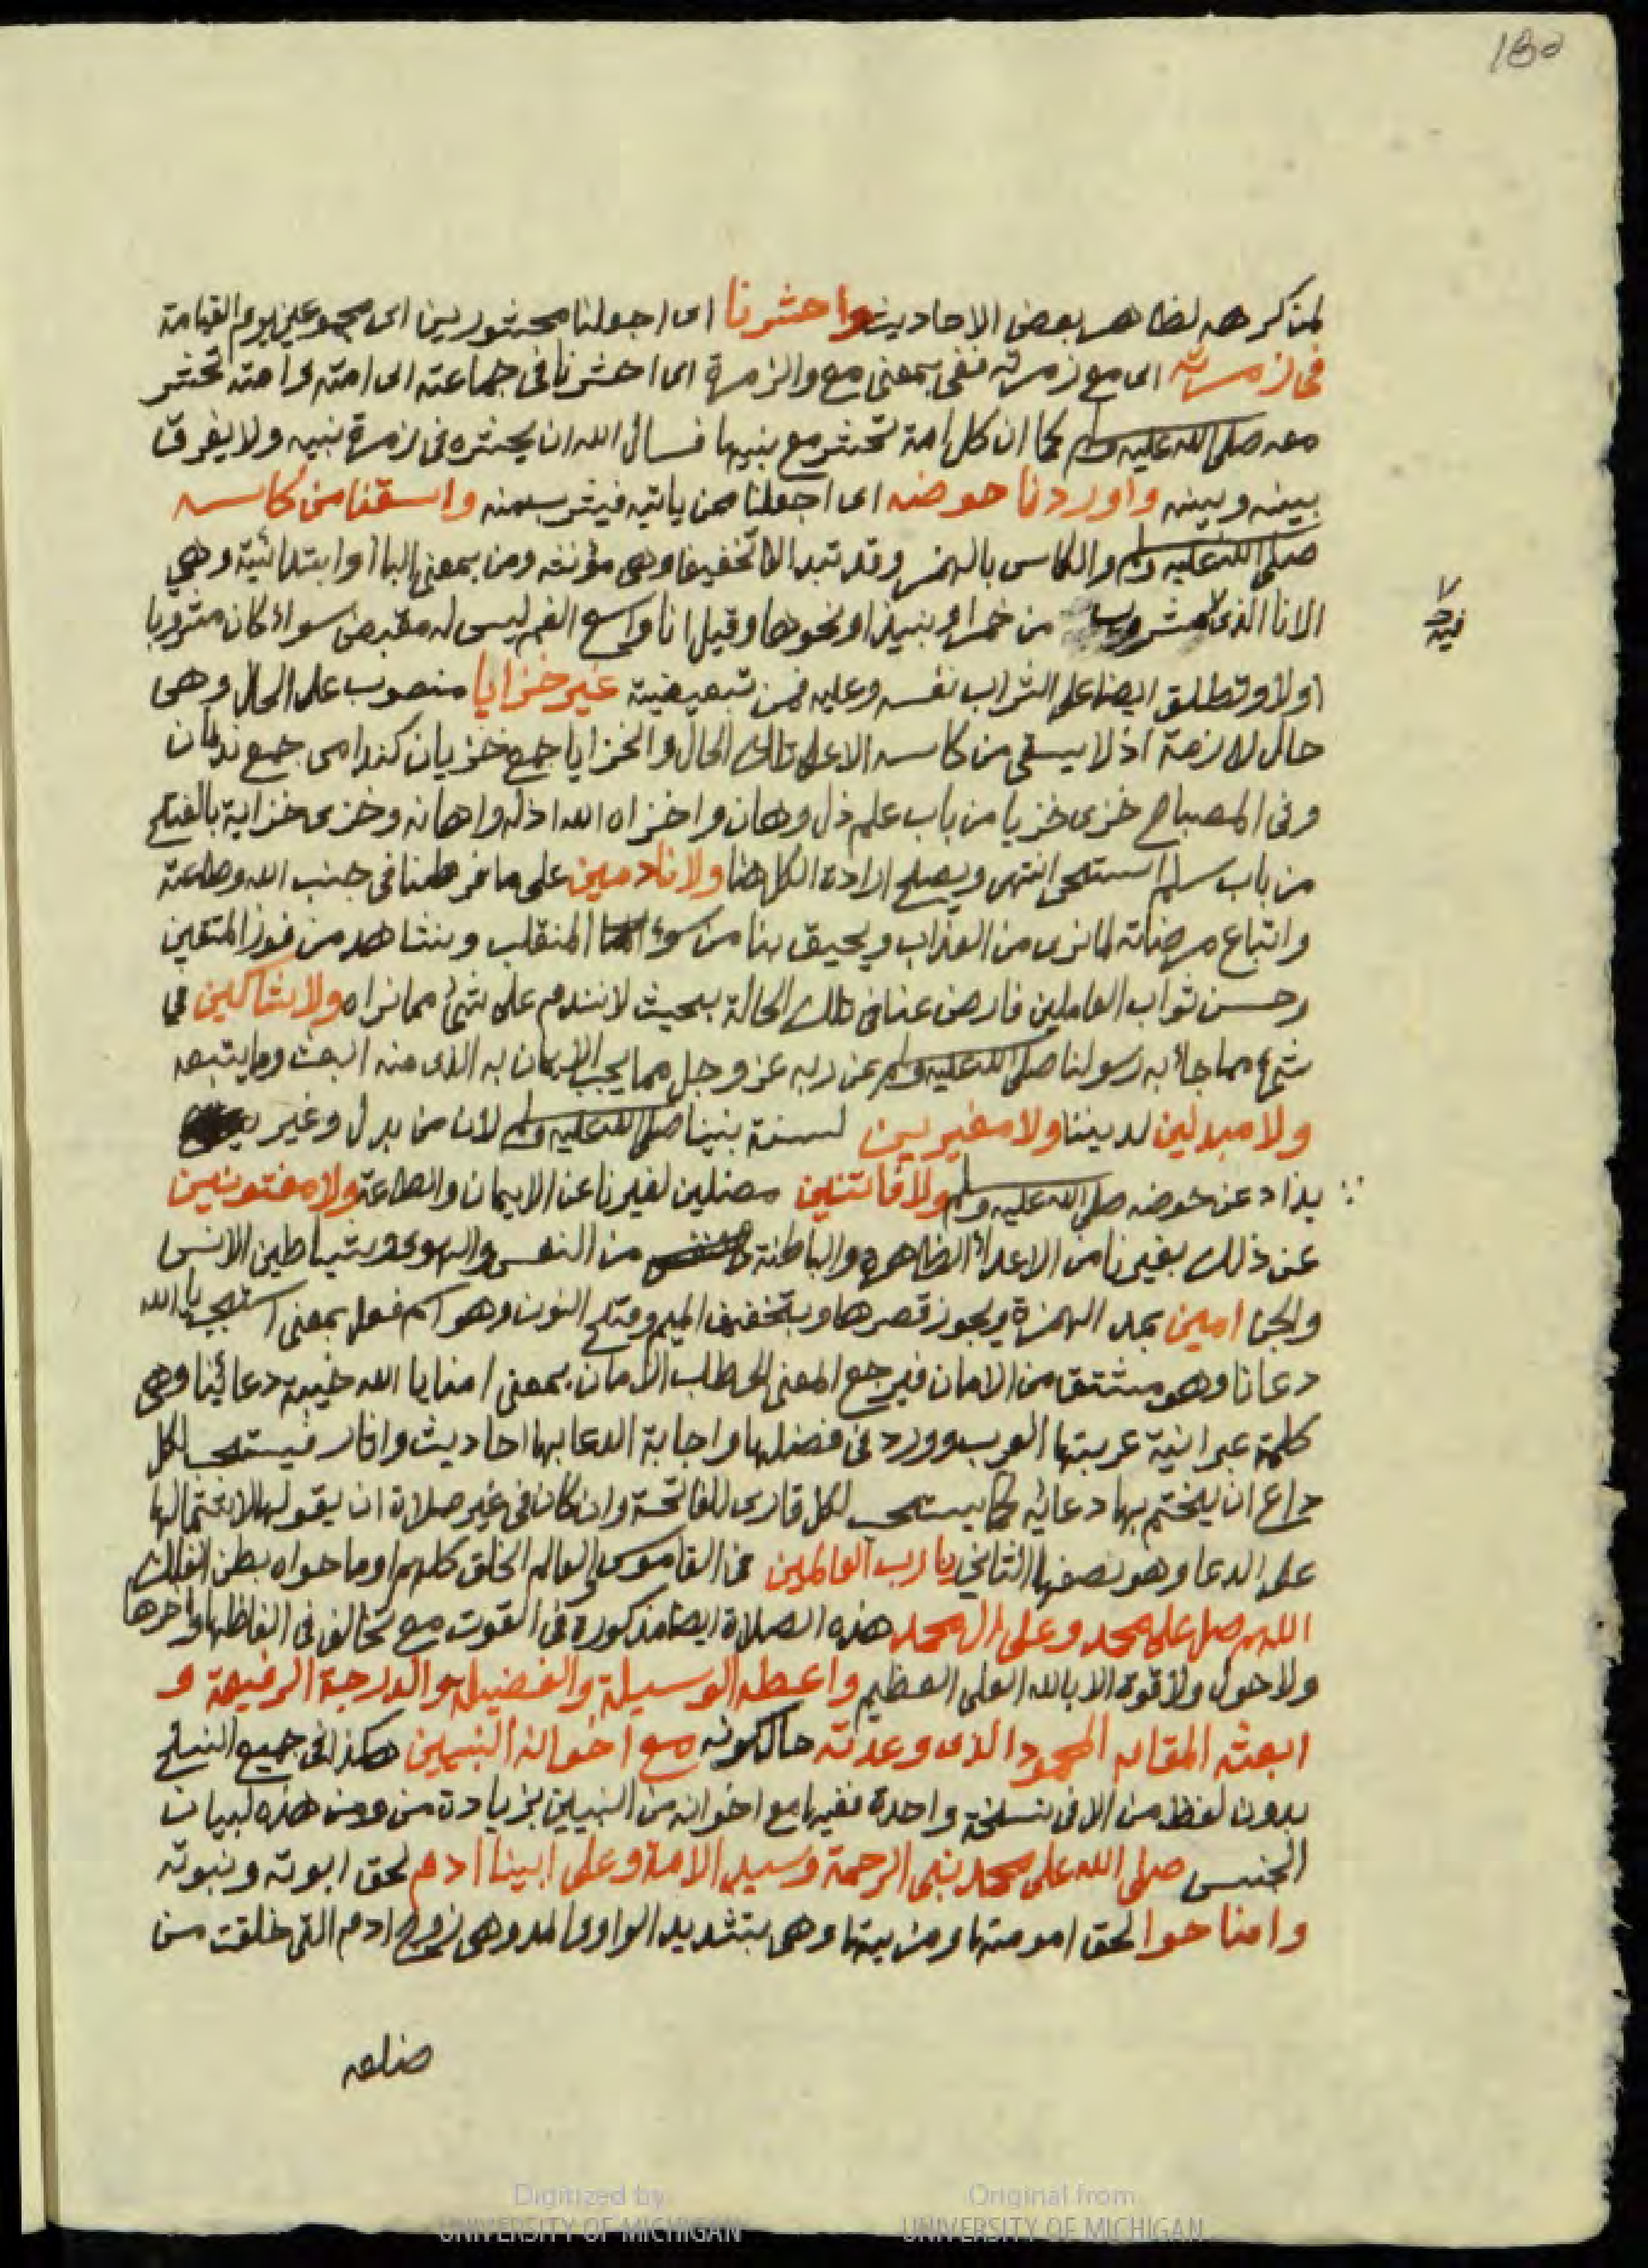 180
لمن كرهه لظاهر بعض الاحاديث واحشرنا اى اجعلنا محشورين اى مجموعين يوم القيامة
فى زمرته اى مع زمرته ففى بمعنى مع والزمرة اى احشرنا فى جماعته اى امته امته تحشر
معه صلى الله عليه وسلم كما ان كل امة تحشر مع نبيها فسال الله ان يحشره فى زمرة نبيه ولا يفرق
بينه وبينه واوردنا حوضه اى اجعلنا ممن ياتيه فيشرب منه واسقنا من كاسه
صلى الله عليه وسلم والكاس بالهمز وقد تبدل الفا تخفيفا وهى مؤنثه ومن بمعنى البا او ابتدائية وهي
الانا الذى مشروب من خمر او نبيذ او نحوها وقيل انا واسع الفم ليس له مقبض سواء كان مشروبا
فيه
اولا وتطلق ايضا على الشراب نفسه وعليه فمن تبعيضية غير خزايا منصوب على الحال وهى
حال لازمة اذ لا يسقى من كاسه الا على تلك الحال والخزايا جمع خزيان كندامى جمع ندمان
وفى المصباح خزى خزيا من باب علم ذل وهان واخزاه الله اذله واهانه وخزى خزاية بالفتح
من باب سلم استحى انتهى ويصلح ارادة الكل هنا ولا نادمين على ما فرطنا فى جنب الله وطاعته
واتباع مرضاته لما نرى من العذاب ويحيق بنا من سوء المنقلب ونشاهد من فوز المتقين
وحسن ثواب العاملين فارض عنا فى تلك الحالة بحيث لا نندم على شئ مما نراه ولا شاكين في
شئ مما جاء به رسولنا صلى الله عليه وسلم عن ربه عز وجل مما يجب الايمان به الذى منه البعث وما يتبعه
ولا مبدلين لديننا ولا مغيرين لسنة نبينا صلى الله عليه وسلم لان من بدل وغير
يذاد عن حوضه صلى الله عليه وسلم ولا فاتنين مضلين لغيرنا عن الايمان والطاعة ولا مفتونين
عن ذلك بغيرنا من الاعداء الظاهرة والباطنة من النفس والهوى وشياطين الانس
والجن امين بمد الهمزة ويجوز قصرها وبتخفيف الميم وفتح النون وهو اسم فعل بمعنى استجب يا الله
دعانا وهو مشتق من الامان فيرجع المعنى الى طلب الامان بمعنى امنا يا الله خيبة دعائنا وهى
كلمة عبرانية عربتها العرب وورد فى فضلها واجابة الدعا بها احاديث واثار فيستحب لكل
داع ان يختم بها دعائه كما يستحب لكل قارى للفاتحة وان كان فى غير صلاة ان يقولها لاشتمالها
على الدعا وهو نصفها الثاني يا رب العالمين فى القاموس العالم الخلق كلهم او ما حواه بطن الفلك
اللهم صل على محمد وعلى ال محمد هذه الصلاة ايضا مذكورة فى القوت مع تخالف فى الفاظها واخرها
ولا حول ولا قوة الا بالله العلى العظيم واعطه الوسيلة والفضيلة والدرجة الرفيعة و
ابعثه المقام المحمود الذى وعدته حال كونه مع اخوانه النبيين هكذا فى جميع النسخ
بدون لفظ من الا فى نسخة واحدة ففيها مع اخوانه من النبيين بزيادة من ومن هذه لبيان
الجنس صلى الله على محمد نبى الرحمة وسيد الامة وعلى ابينا ادم لحق ابوته ونبوته
وامنا حوا لحق امومتها ومزيتها وهى بتشديد الواو والمد وهى زوج ادم التى خلقت من
ضلعه
Digitized by
UNIVERSITY OF MICHIGAN
Original from
UNIVERSITY OF MICHIGAN